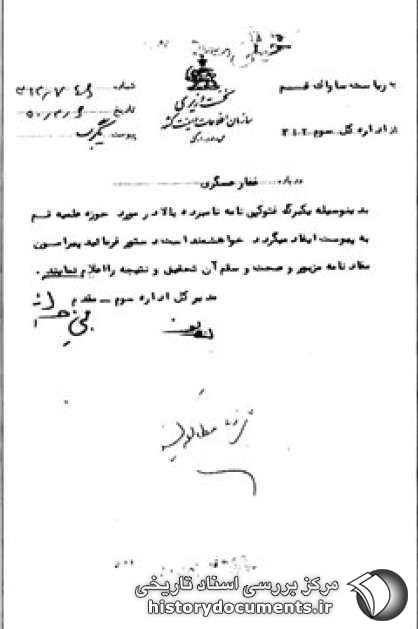 به ریاست ساواک قم
از اداره کل سوم ۳۱۲
شماره
تاریخ
پیوست یکبرگ
نخست وزیری
سازمان اطلاعات و امنیت کشور
درباره غفار عسگری
بدینوسیله یکبرگ فتوکپی نامه نامبرده بالا در مورد حوزه علمیه قم
به پیوست ایفاد میگردد خواهشمند است دستور فرمائید پیرامون
مفاد نامه مزبور و صحت و سقم آن تحقیق و نتیجه را اعلام نمایند.
مدیر کل اداره سوم – مقدم
مرکز بررسی اسناد تاریخی
historydocuments.ir